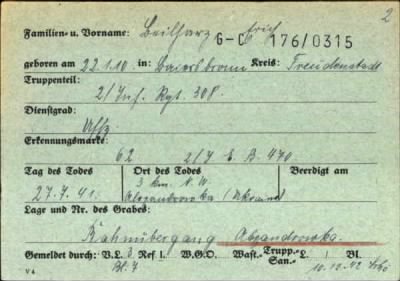 2
Familien- u. Vorname: Beilharz Erich G-C 176/0315
geboren am 22.1.10 in: Baiersbronn Kreis: Freudenstadt
Truppenteil:
2/Inf. Rgt. 308.
Dienstgrad:
Uffz
Erkennungsmarke:
62 2/J. E. B. 470
Tag des Todes Ort des Todes Beerdigt am
3 km N.W.
27.7.41. Alexandrowka (Ukraine)
Lage und Nr. des Grabes:
Bahnübergang Alexandrowka.
Gemeldet durch: V.L. 3 Ref 1. W.G.O. Wast.- Trupp.- San.- L. / Bl.
Bl. 7 10.12.42
V 4